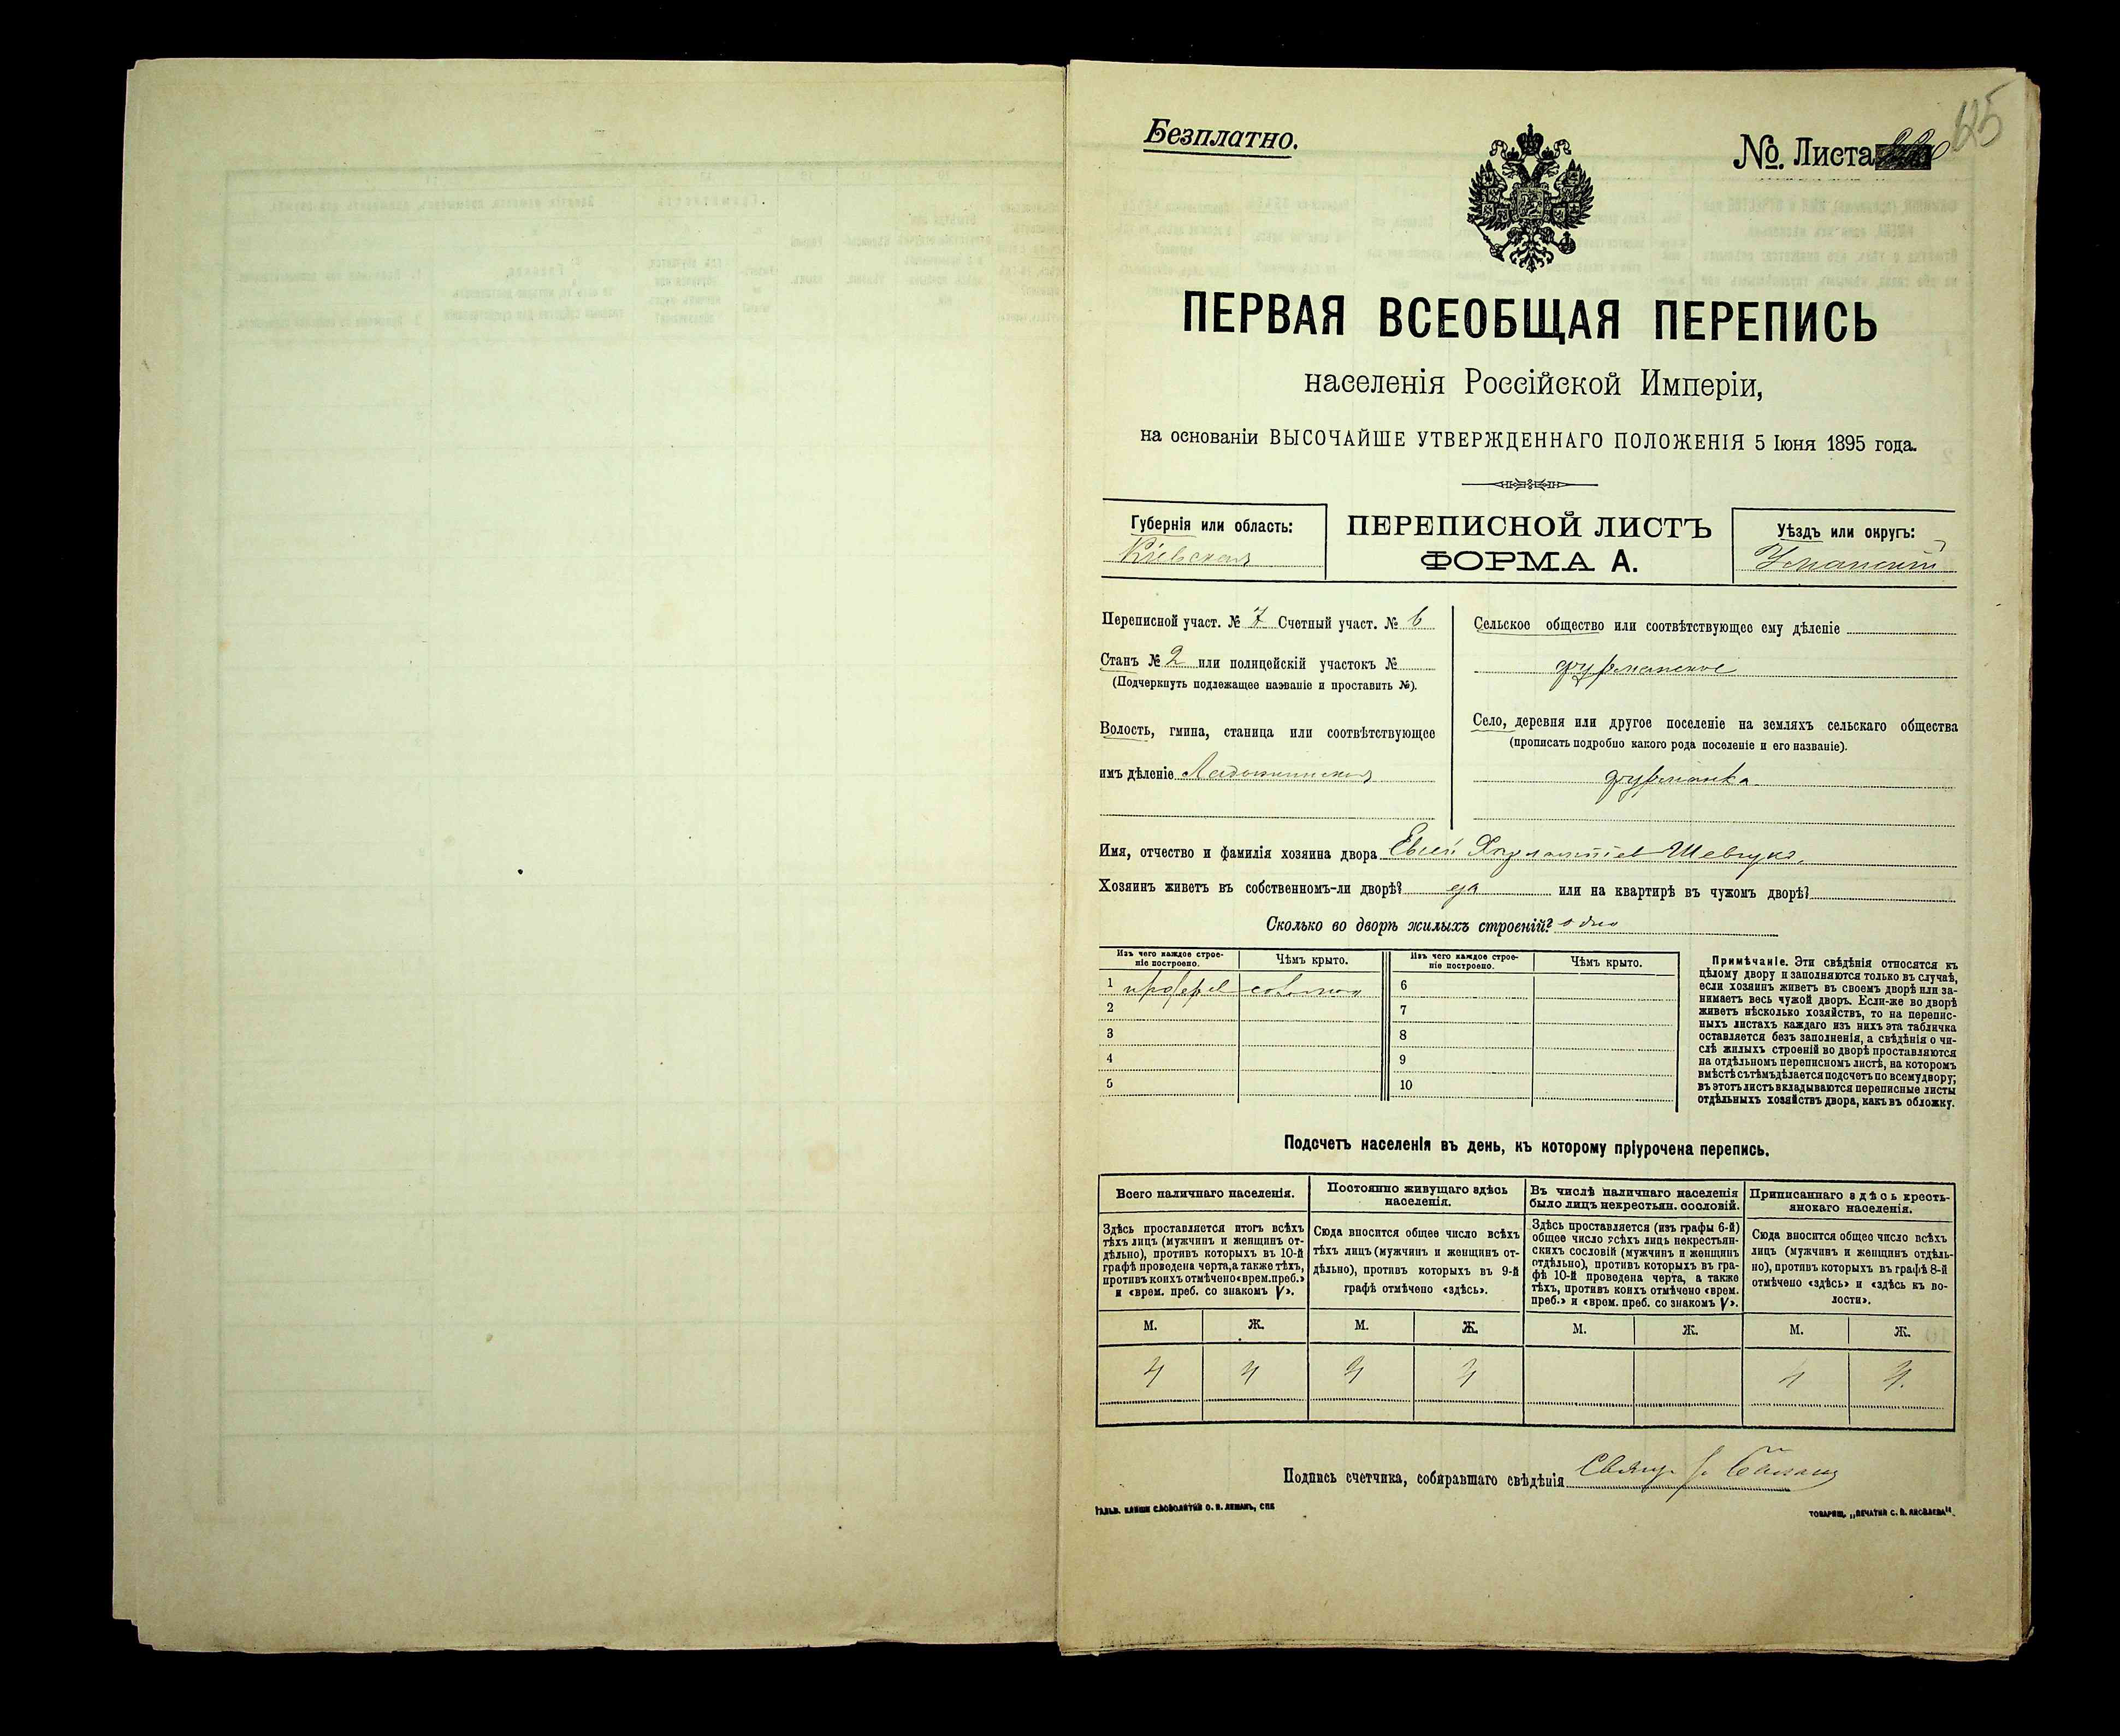 65
Безплатно.
№. Листа
ПЕРВАЯ ВСЕОБЩАЯ ПЕРЕПИСЬ
населенія Россійской Имперіи,
на основаніи ВЫСОЧАЙШЕ УТВЕРЖДЕННАГО ПОЛОЖЕНІЯ 5 Іюня 1895 года.
Губернія или область:
Кіевская
ПЕРЕПИСНОЙ ЛИСТЪ
ФОРМА А.
Уѣздъ или округъ:
Уманскій
Переписной участ. № 7 Счетный участ. № 6
Станъ № 2 или полицейскій участокъ №
(Подчеркнуть подлежащее названіе и проставить №).
Волость, гмина, станица или соотвѣтствующее
имъ дѣленіе Ладыжинская
Сельское общество или соотвѣтствующее ему дѣленіе
фурманское
Село, деревня или другое поселеніе на земляхъ сельскаго общества
(прописать подробно какого рода поселеніе и его названіе).
фурманка
Имя, отчество и фамилія хозяина двора Евсей Харлампіев Шевчукъ
Хозяинъ живетъ въ собственномъ-ли дворѣ? да или на квартирѣ въ чужомъ дворѣ?
Сколько во дворѣ жилыхъ строеній? одно
Изъ чего каждое строе-
ніе построено.
Чѣмъ крыто.
Изъ чего каждое строе-
ніе построено.
Чѣмъ крыто.
1 соломой
2
3
4
5
6
7
8
9
10
Примѣчаніе. Эти свѣдѣнія относятся къ
цѣлому двору и заполняются только въ случаѣ,
если хозяинъ живетъ въ своемъ дворѣ или за-
нимаетъ весь чужой дворъ. Если-же во дворѣ
живетъ нѣсколько хозяйствъ, то на перепис-
ныхъ листахъ каждаго изъ нихъ эта табличка
оставляется безъ заполненія, а свѣдѣнія о чи-
слѣ жилыхъ строеній во дворѣ проставляются
на отдѣльномъ переписномъ листѣ, на которомъ
вмѣстѣ съ тѣмъ дѣлается подсчетъ по всему двору;
въ этотъ листъ вкладываются переписные листы
отдѣльныхъ хозяйствъ двора, какъ въ обложку.
Подсчетъ населенія въ день, къ которому пріурочена перепись.
Всего наличнаго населенія.
Здѣсь проставляется итогъ всѣхъ
тѣхъ лицъ (мужчинъ и женщинъ от-
дѣльно), противъ которыхъ въ 10-й
графѣ проведена черта, а также тѣхъ,
противъ коихъ отмѣчено «врем. преб.»
и «врем. преб. со знакомъ V».
Постоянно живущаго здѣсь
населенія.
Сюда вносится общее число всѣхъ
тѣхъ лицъ (мужчинъ и женщинъ от-
дѣльно), противъ которыхъ въ 9-й
графѣ отмѣчено «здѣсь».
Въ числѣ наличнаго населенія
было лицъ некрестьян. сословій.
Здѣсь проставляется (изъ графы 6-й)
общее число всѣхъ лицъ некрестьян-
скихъ сословій (мужчинъ и женщинъ
отдѣльно), противъ которыхъ въ гра-
фѣ 10-й проведена черта, а также
тѣхъ, противъ коихъ отмѣчено «врем.
преб.» и «врем. преб. со знакомъ V».
Приписаннаго здѣсь кресть-
янскаго населенія.
Сюда вносится общее число всѣхъ
лицъ (мужчинъ и женщинъ отдѣль-
но), противъ которыхъ въ графѣ 8-й
отмѣчено «здѣсь» и «здѣсь къ во-
лости».
М. Ж. М. Ж. М. Ж. М. Ж.
4 4 4 4 4 4
Подпись счетчика, собиравшаго свѣдѣнія
ТОВАРИЩ. „ПЕЧАТНЯ С. П. ЯКОВЛЕВА".